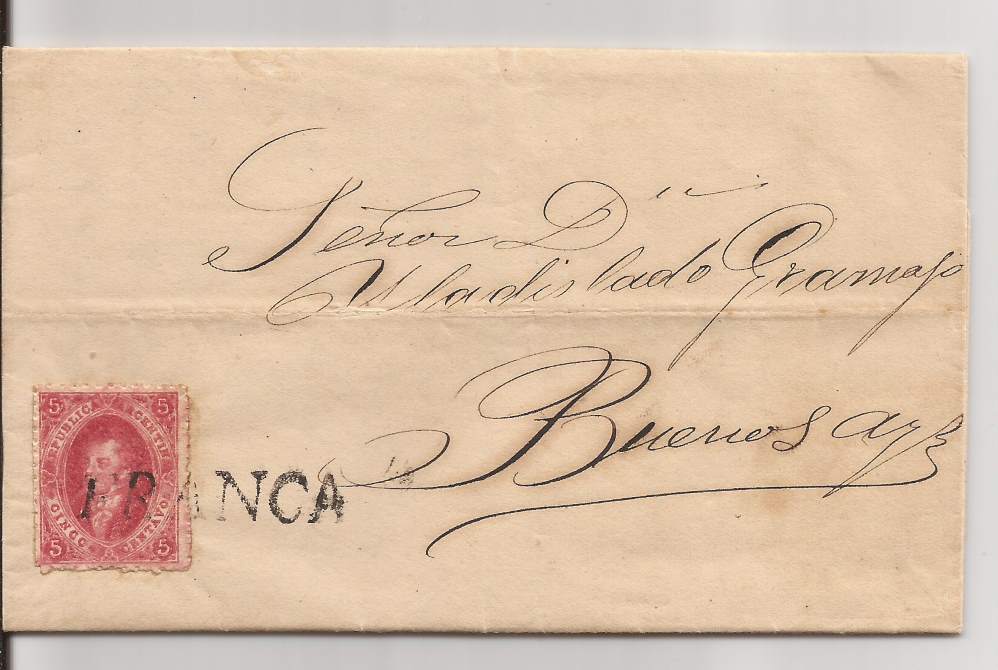 Señor Dn
Uladislado Gramajo
Buenos Ays
5 5
REPUBLICA ARGENTINA
FRANCA
CINCO CENTAVOS
5 5